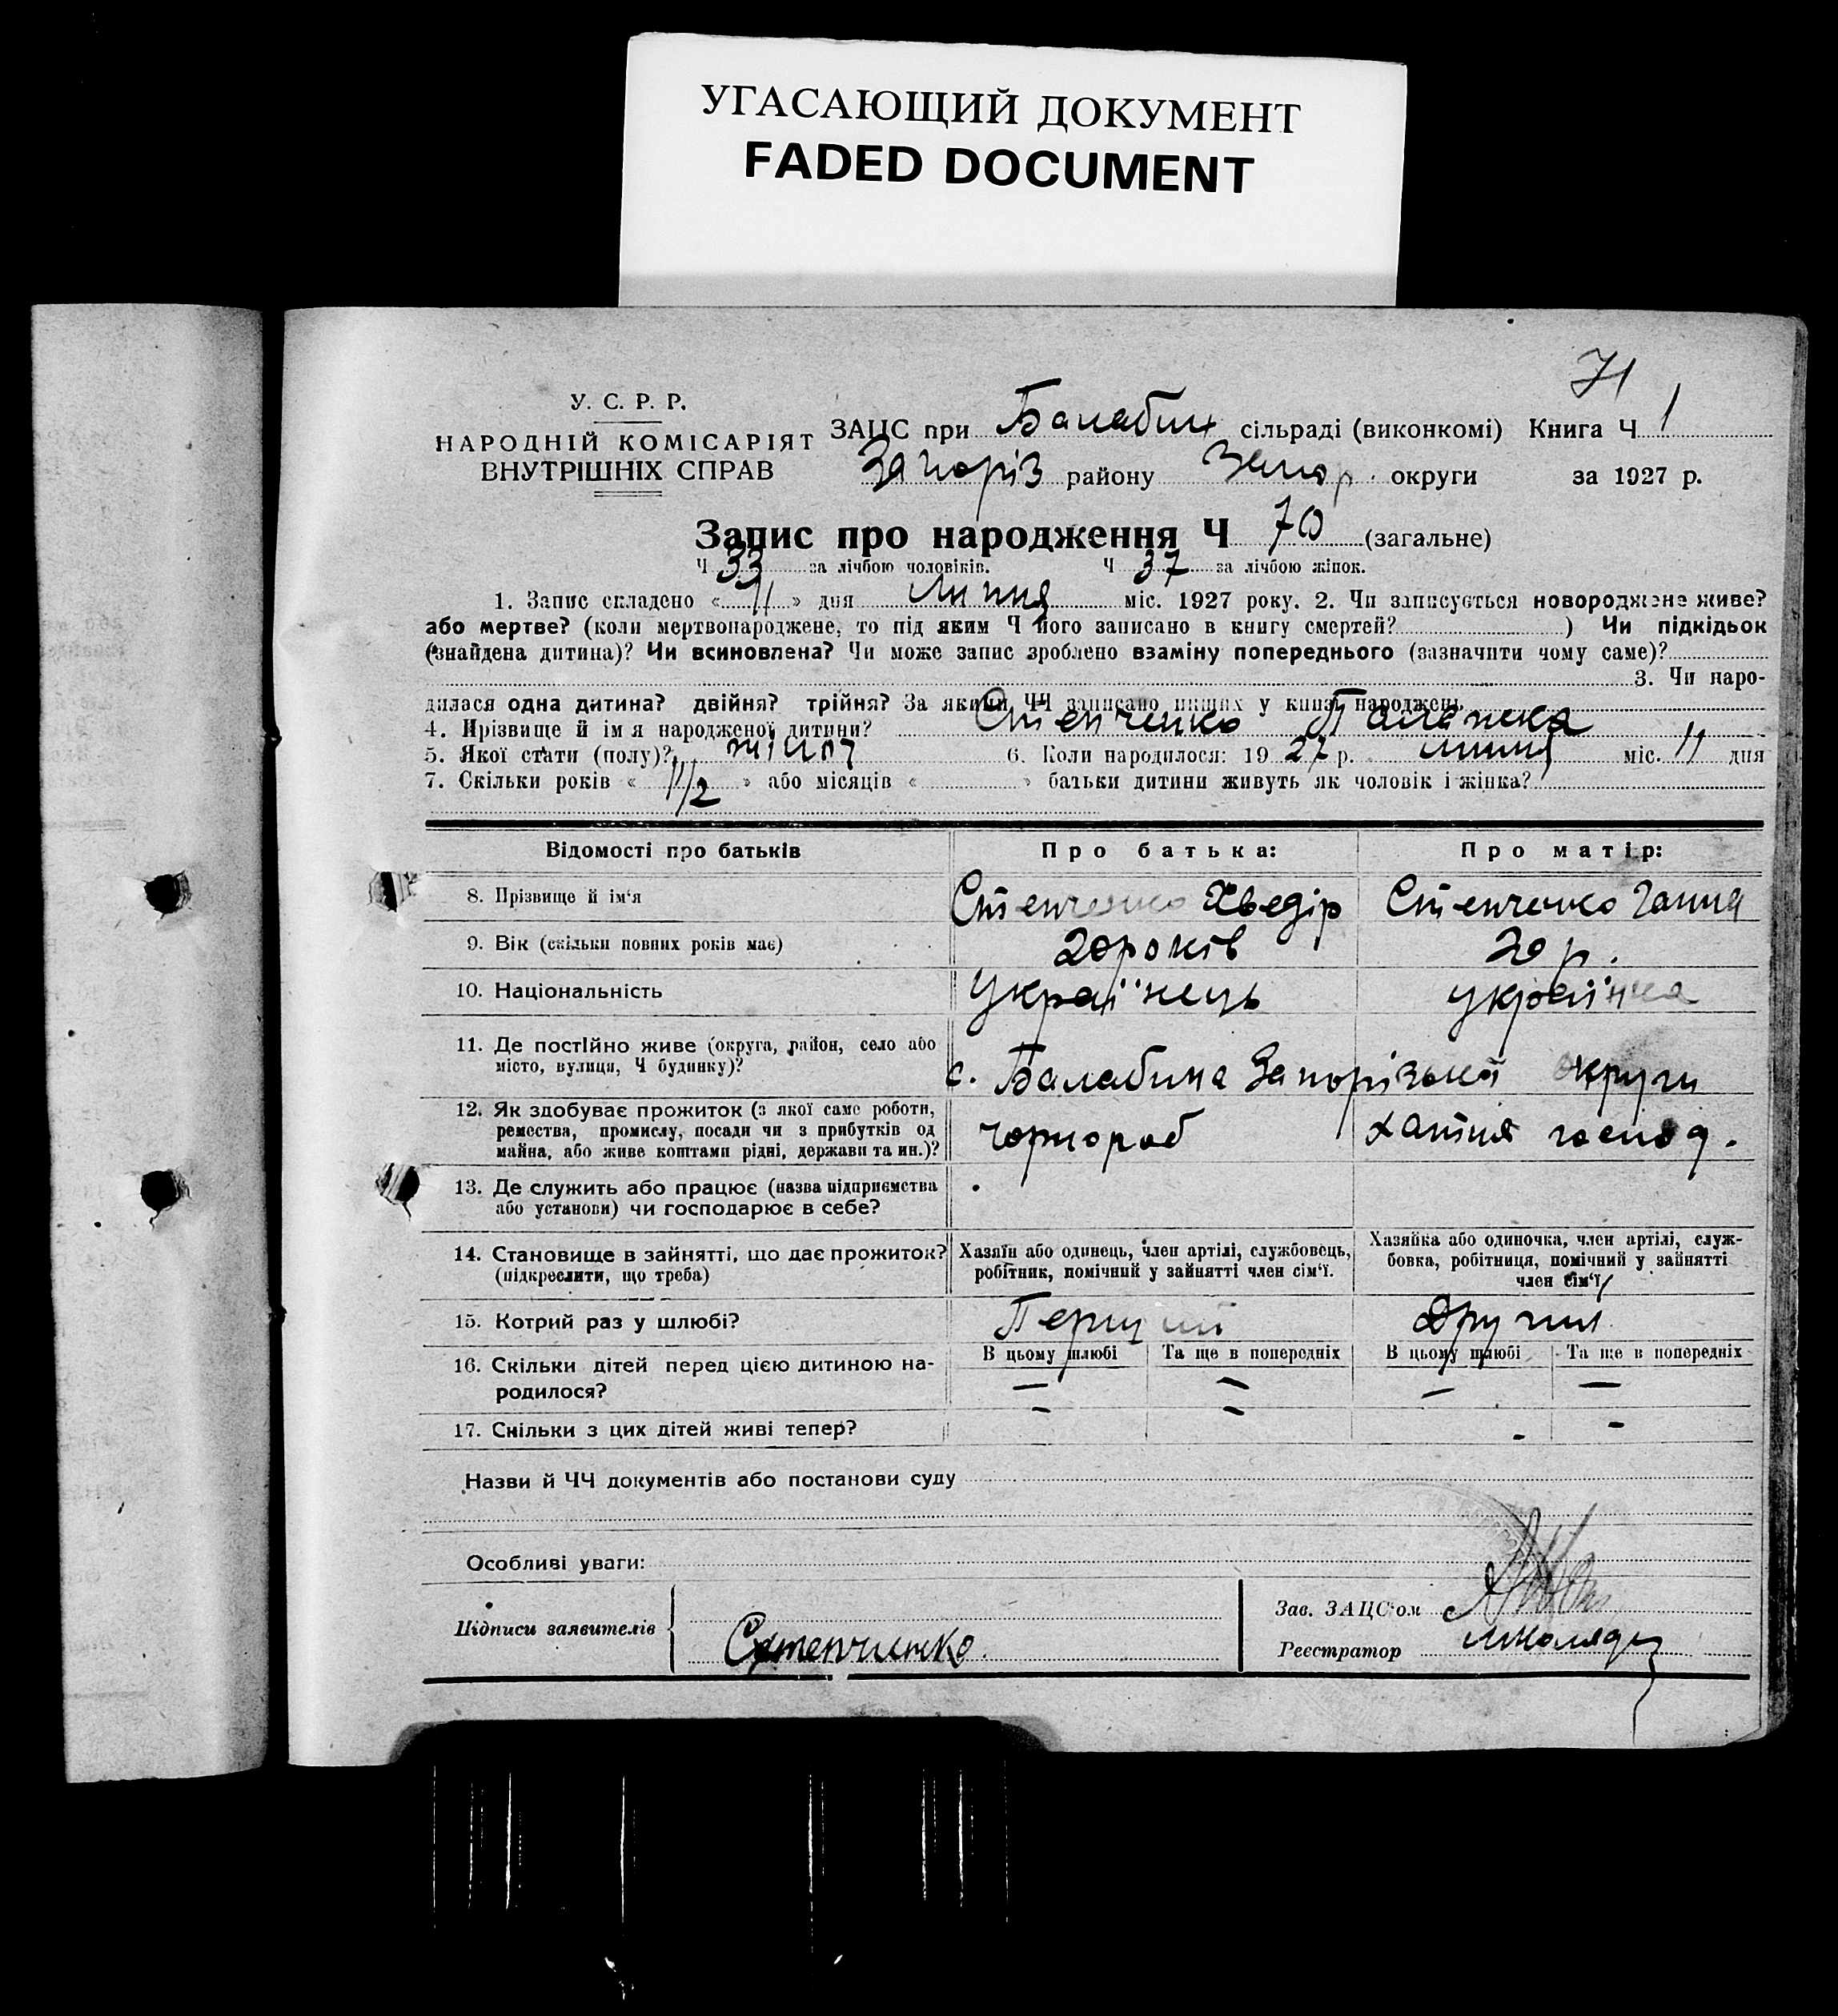 УГАСАЮЩИЙ ДОКУМЕНТ
FADED DOCUMENT
71
У. С. Р. Р.
НАРОДНІЙ КОМІСАРІЯТ
ВНУТРІШНІХ СПРАВ
ЗАЦС при Балабин сільраді (виконкомі) Книга Ч 1
Запоріз району Запор. округи за 1927 р.
Запис про народження Ч 70 (загальне)
Ч 33 за лічбою чоловіків. Ч 37 за лічбою жінок.
1. Запис складено «11» дня Липня міс. 1927 року. 2. Чи записується новороджене живе?
або мертве? (коли мертвонароджене, то під яким Ч його записано в книгу смертей? ) Чи підкідьок
(знайдена дитина)? Чи всиновлена? Чи може запис зроблено взаміну попереднього (зазначити чому саме)?
3. Чи наро-
дилася одна дитина? двійня? трійня? За якими ЧЧ записано инших у книзі народжень
4. Прізвище й ім'я народженої дитини? Стенченко
5. Якої стати (полу)? жіноч 6. Коли народилося: 1927 р. липня міс. 11 дня
7. Скільки років « 1 1/2 » або місяців « » батьки дитини живуть як чоловік і жінка?
Відомості про батьків
Про батька:
Про матір:
8. Прізвище й ім'я
Стенченко Хведір
Стенченко Ганна
9. Вік (скільки повних років має)
20 років
20 р.
10. Національність
Українець
українка
11. Де постійно живе (округа, район, село або
місто, вулиця, Ч будинку)?
с. Балабина Запорізької округи
12. Як здобуває прожиток (з якої саме роботи,
ремества, промислу, посади чи з прибутків од
майна, або живе коштами рідні, держави та ин.)?
чорнороб
хатня господ.
13. Де служить або працює (назва підприємства
або установи) чи господарює в себе?
14. Становище в зайнятті, що дає прожиток?
(підкреслити, що треба)
Хазяїн або одинець, член артілі, службовець,
робітник, помічний у зайнятті член сім'ї.
Хазяйка або одиночка, член артілі, служ-
бовка, робітниця, помічний у зайнятті
член сім'ї
15. Котрий раз у шлюбі?
Перший
Другий
16. Скільки дітей перед цією дитиною на-
родилося?
В цьому шлюбі
Та ще в попередніх
В цьому шлюбі
Та ще в попередніх
— — — —
17. Скільки з цих дітей живі тепер?
- - - -
Назви й ЧЧ документів або постанови суду
Особливі уваги:
Підписи заявителів
Стенчинко.
Зав. ЗАЦС'ом
Реєстратор